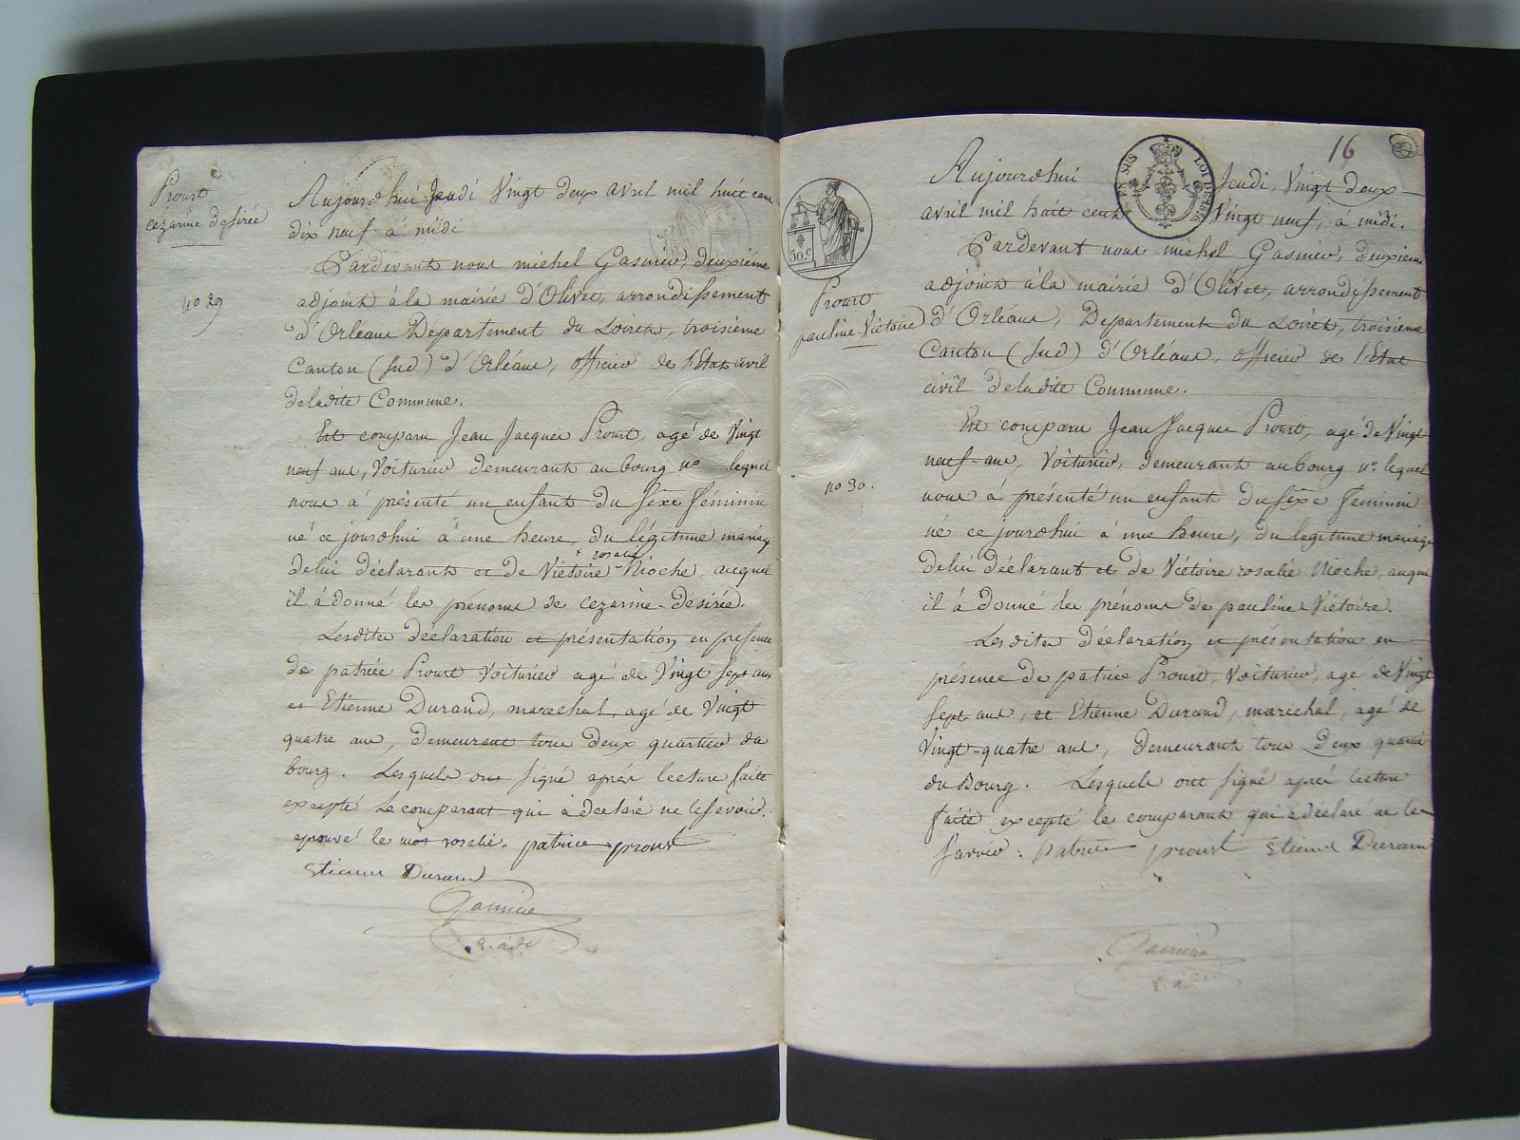 Proust
cezarine desirée
no 29
Aujourdhui Jeudi Vingt deux avril mil huit cent
dix neuf à midi
Pardevant nous michel Gasnier, deuxieme
adjoint à la mairie d'Olivet, arrondissement
d'Orleans Département du Loiret, troisieme
Canton (Sud) d'Orléans, officier de l'Etat civil
deladite Commune.
Est comparu Jean Jacques Proust, agé de Vingt
neuf ans, Voiturier demeurant au bourg no lequel
nous a présenté un enfant du sexe féminin
né ce jourdhui à une heure, du légitime mariage
delui déclarant et de Victoire + rosalie Moche, auquel
il a donné les prénoms de cezarine-desirée.
Lesdites déclaration et présentation en presence
de patrice Proust Voiturier agé de Vingt sept ans
et Etienne Durand, marechal, agé de Vingt
quatre ans, demeurant tous deux quartier du
bourg. Lesquels ont signé après lecture faite
excepté Le comparant qui a declaré ne le savoir.
aprouvé le mot rosalie. patrice proust
Etienne Durand
Gasnier
16
30 c
Proust
pauline Victoire
no 30.
Aujourdhui Jeudi, Vingt deux
avril mil huit cent Vingt neuf, à midi.
Pardevant nous michel Gasnier, deuxieme
adjoint à la mairie d'Olivet, arrondissement
d'Orléans, Departement du Loiret, troisieme
Canton (Sud) d'Orléans, officier de l'Etat
civil deladite Commune.
Est comparu Jean Jacques Proust, agé de Vingt
neuf-ans, Voiturier, demeurant au bourg no lequel
nous a présenté un enfant du sexe féminin
né ce jourdhui à une heure, du legitime mariage
delui déclarant et de Victoire rosalie Moche, auquel
il a donné les prénoms de pauline Victoire.
Lesdites déclaration et présentation en
présence de patrice Proust, Voiturier, agé de Vingt
sept ans, et Etienne Durand, marechal, agé de
Vingt-quatre ans, demeurant tous deux quartier
du Bourg. Lesquels ont signé après lecture
faite excepté le comparant qui a declaré ne le
savoir. patrice proust Etienne Durand
Gasnier